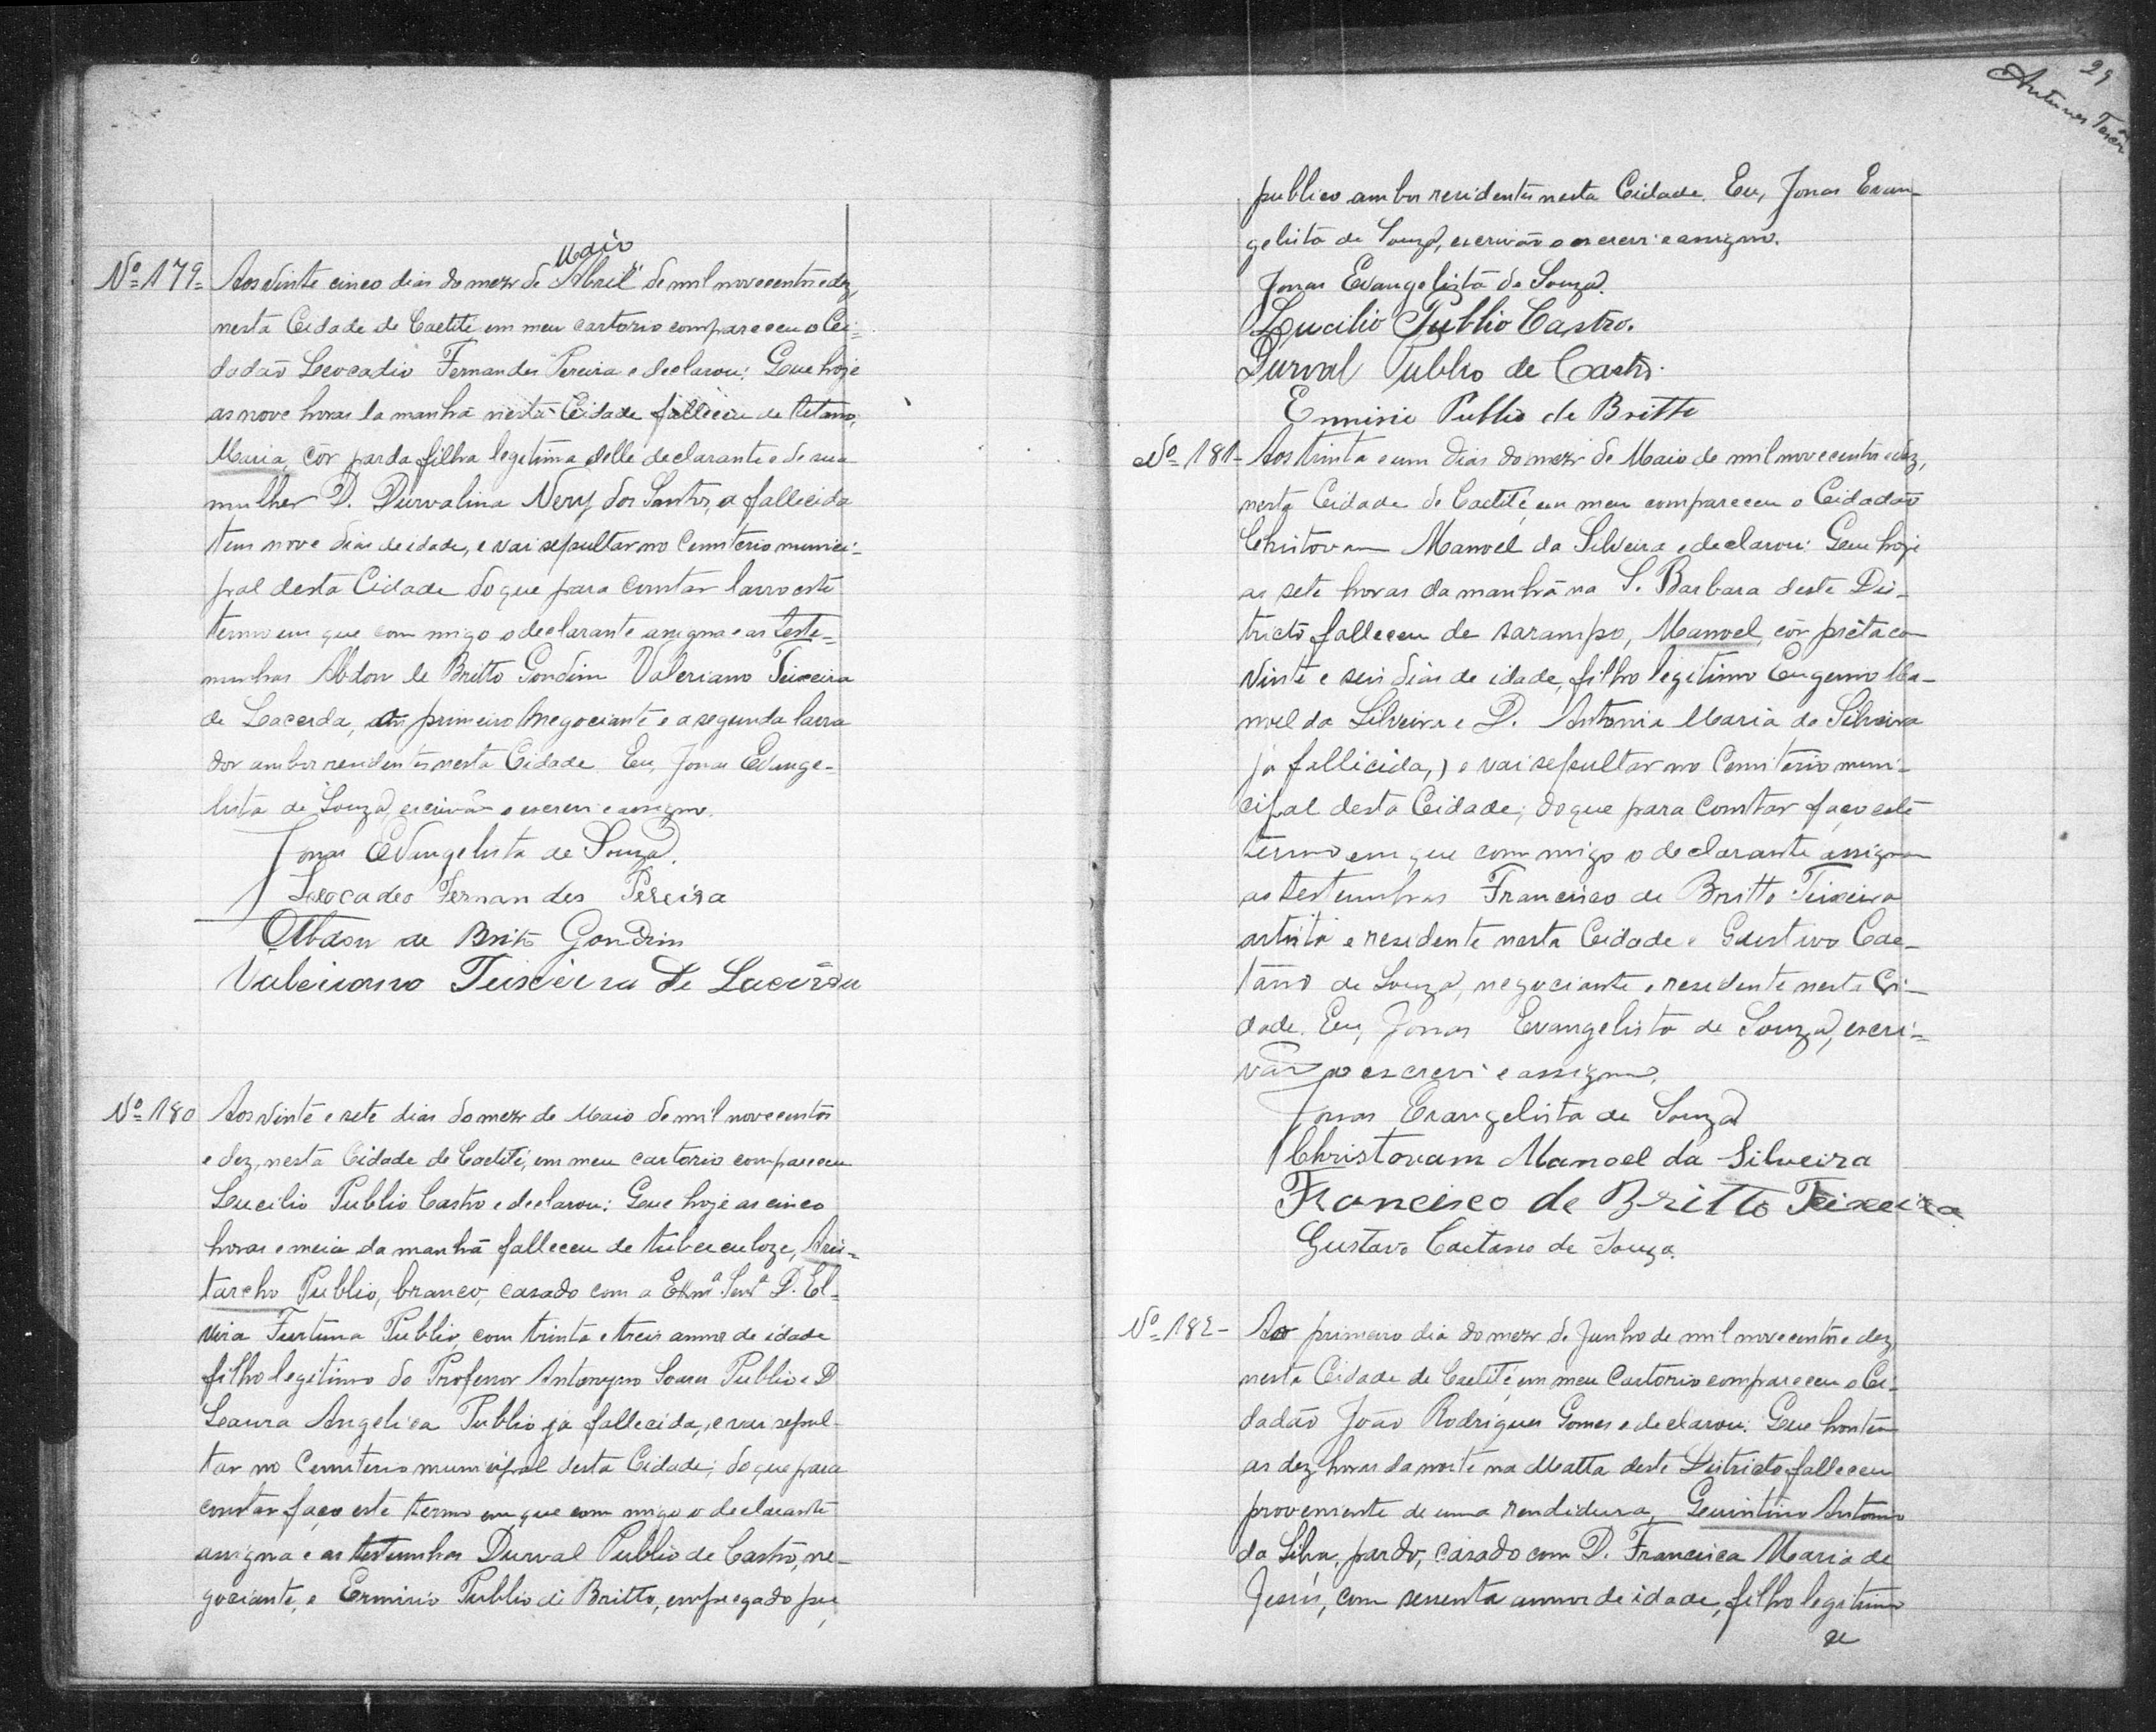 Maio
Nº 179 - Aos vinte cinco dias do mez de Abril de mil novecentos e dez,
nesta Cidade de Caetité em meu cartorio compareceu o Ci-
dadão Leocadio Fernandes Pereira e declarou: Que hoje
as nove horas da manhã nesta Cidade falleceu de tetano,
Maria, côr parda filha legitima delle declarante e de sua
mulher D. Durvalina Nery dos Santos, a fallecida
tem nove dias de idade, e vai sepultar no Cemiterio munici-
pal desta Cidade do que para constar lavro este
termo em que com migo o declarante assigna e as teste-
munhas Abdon de Britto Gondim Valeriano Teixeira
de Lacerda, primeiro negociante e a segunda lavra
dor ambos residentes nesta Cidade. Eu, Jonas Evange-
lista de Souza, escrivão o escrevi e assigno.
Jonas Evangelista de Souza.
Leocadio Fernandes Pereira
Abdon de Brito Gondim
Valeriano Teixeira de Lacerda
Nº 180 Aos vinte e sete dias do mez de Maio de mil novecentos
e dez, nesta Cidade de Caetité, em meu cartorio compareceu
Lucilio Publio Castro e declarou: Que hoje as cinco
horas e meia da manhã falleceu de tuberculoze, Aris-
tarcho Publio, branco, casado com a Exmª Senrª D. El-
vira Furtuna Publio, com trinta e treis annos de idade
filho legitimo do Professor Antonyno Soares Publio e D
Laura Angelica Publio já fallecida, e vai sepul-
tar no Cemiterio municipal desta Cidade; do que para
constar faço este termo em que com migo o declarante
assigna e as testemunhas Durval Publio de Castro, ne-
gociante, e Erminio Publio de Britto, empregado pu
29
Antunes
publico ambos residentes nesta Cidade. Eu, Jonas Evan-
gelista de Souza, escrivão o escrevi e assigno.
Jonas Evangelista de Souza.
Lucilio Publio Castro.
Durval Publio de Castro.
Erminio Publio de Britto
Nº 181 - Aos trinta e um dias do mez de Maio de mil novecentos e dez,
nesta Cidade de Caetité, em meu compareceu o Cidadão
Christovam Manoel da Silveira e declarou: Que hoje
as sete horas da manhã na S. Barbara deste Dis-
tricto falleceu de sarampo, Manoel, côr prêta com
vinte e seis dias de idade, filho legitimo Eugenio Ma-
noel da Silveira e D. Antonia Maria da Silveira
já fallicida,) e vai sepultar no Cemiterio muni-
cipal desta Cidade; do que para constar faço este
termo em que com migo o declarante assigna
as testemunhas Francisco de Britto Teixeira
artista e residente nesta Cidade e Gustivo Cae-
tano de Souza, negociante e residente nesta Ci-
dade. Eu, Jonas Evangelista de Souza, escri-
vão o escrevi e assigno.
Jonas Evangelista de Souza
Christovam Manoel da Silveira
Francisco de Britto Teixeira
Gustavo Caetano de Souza.
Nº 182 - Ao primeiro dia do mez de Junho de mil novecentos e dez,
nesta Cidade de Caetité, em meu Cartorio compareceu o Ci-
dadão João Rodrigues Gomes e declarou: Que hontem
as dez horas da noite na Matta deste Districto falleceu
proveniente de uma rendidura, Quintino Antonio
da Silva, pardo, casado com D. Francisca Maria de
Jesus, com sessenta annos de idade, filho legitimo
de